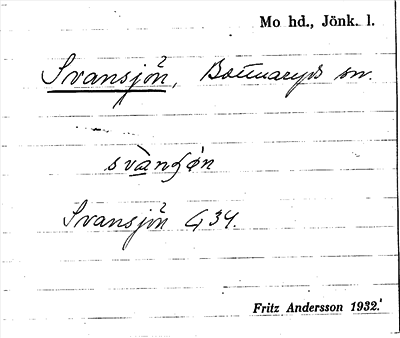 Mo hd., Jönk. l.
Svansjön, Bottnaryds sn.
svànʃø̀n
Svansjön G 34.
Fritz Andersson 1932.